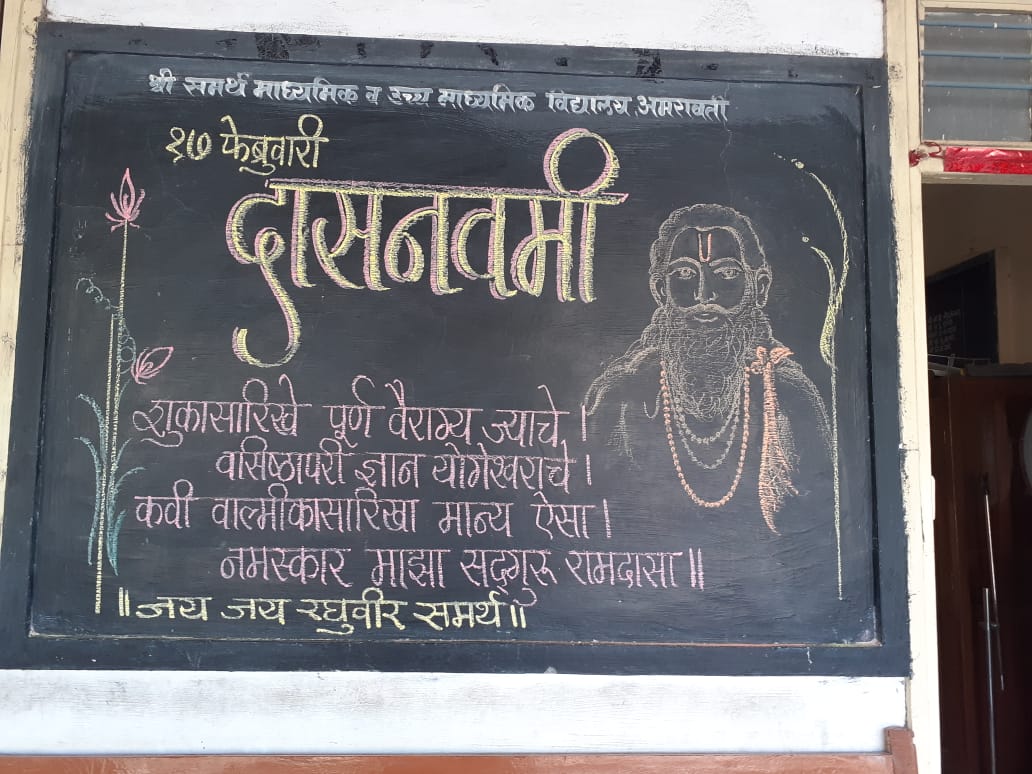 श्री समर्थ माध्यमिक व उच्च माध्यमिक विद्यालय, अमरावती
१७ फेब्रुवारी
दासनवमी
शुकासारिखे पूर्ण वैराग्य ज्याचे ।
वसिष्ठापरी ज्ञान योगेश्वराचे ।
कवी वाल्मीकासारिखा मान्य ऐसा ।
नमस्कार माझा सद्गुरू रामदासा ॥
॥ जय जय रघुवीर समर्थ ॥